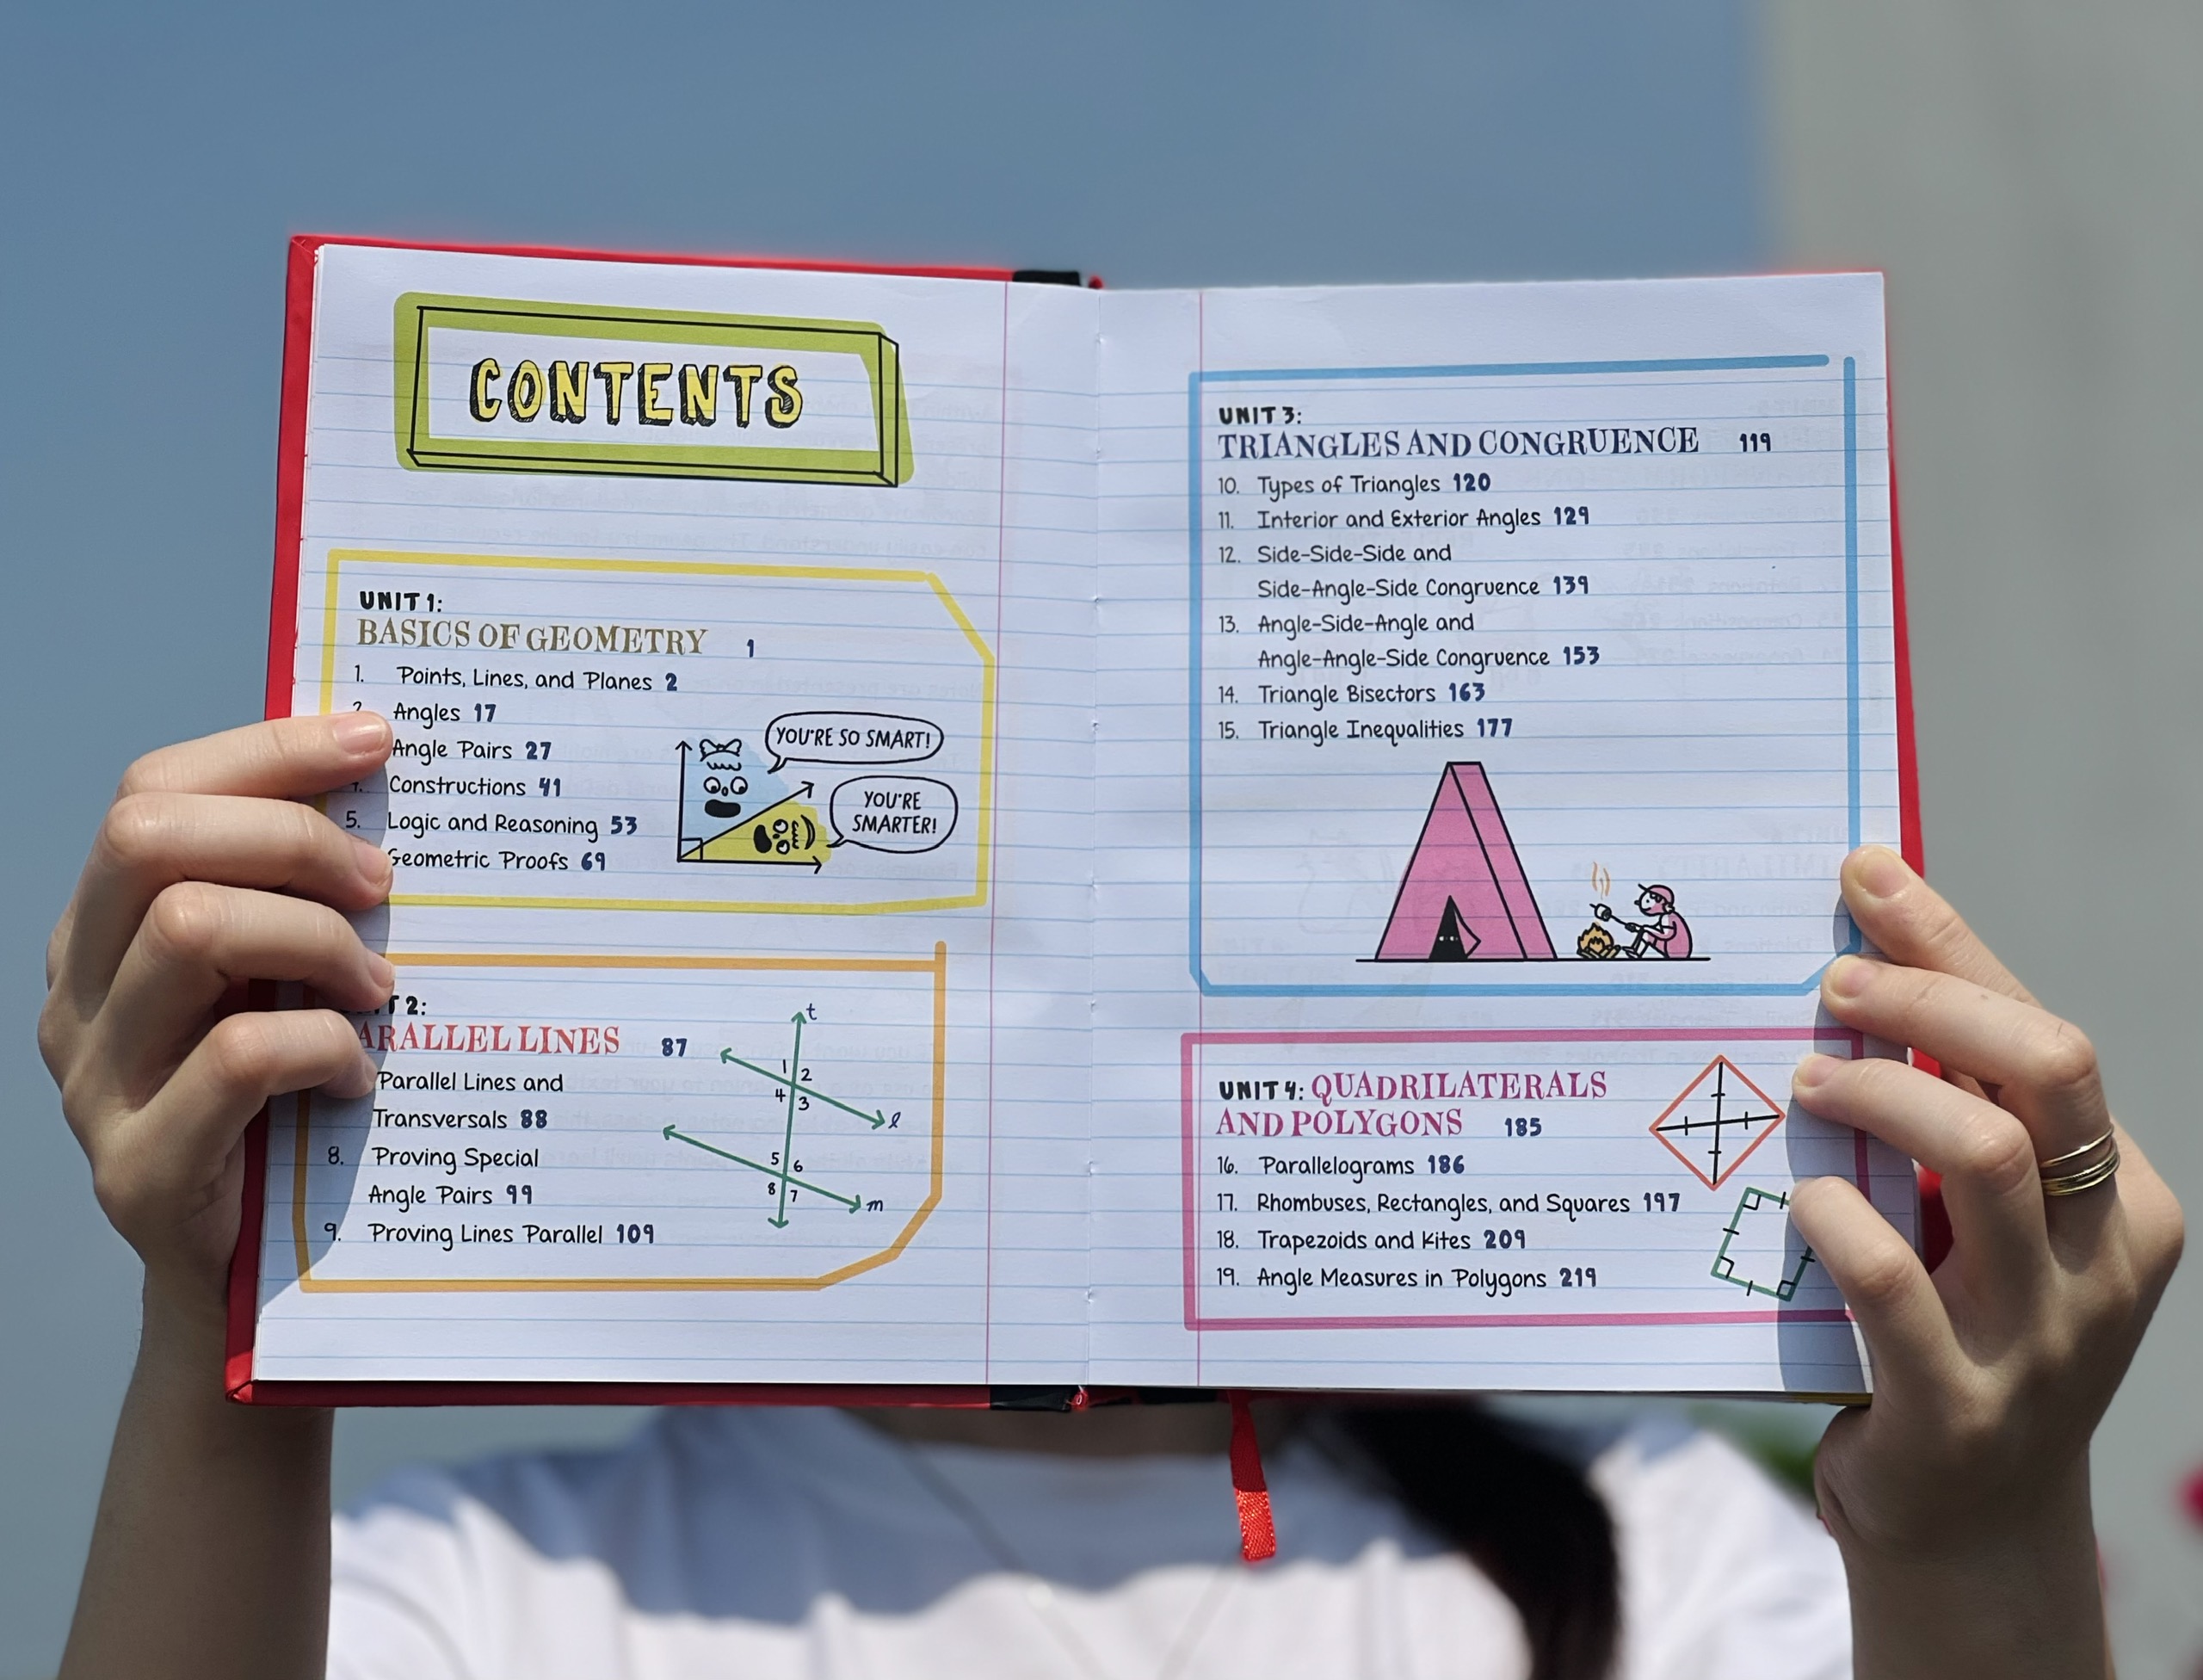 CONTENTS
UNIT 1:
BASICS OF GEOMETRY 1
1. Points, Lines, and Planes 2
2. Angles 17
Angle Pairs 27
4. Constructions 41
5. Logic and Reasoning 53
Geometric Proofs 69
YOU'RE SO SMART!
YOU'RE
SMARTER!
T 2:
ARALLEL LINES 87
Parallel Lines and
Transversals 88
8. Proving Special
Angle Pairs 99
9. Proving Lines Parallel 109
t
1 2
4 3
l
5 6
8 7
m
UNIT 3:
TRIANGLES AND CONGRUENCE 119
10. Types of Triangles 120
11. Interior and Exterior Angles 129
12. Side-Side-Side and
Side-Angle-Side Congruence 139
13. Angle-Side-Angle and
Angle-Angle-Side Congruence 153
14. Triangle Bisectors 163
15. Triangle Inequalities 177
UNIT 4: QUADRILATERALS
AND POLYGONS 185
16. Parallelograms 186
17. Rhombuses, Rectangles, and Squares 197
18. Trapezoids and Kites 209
19. Angle Measures in Polygons 219